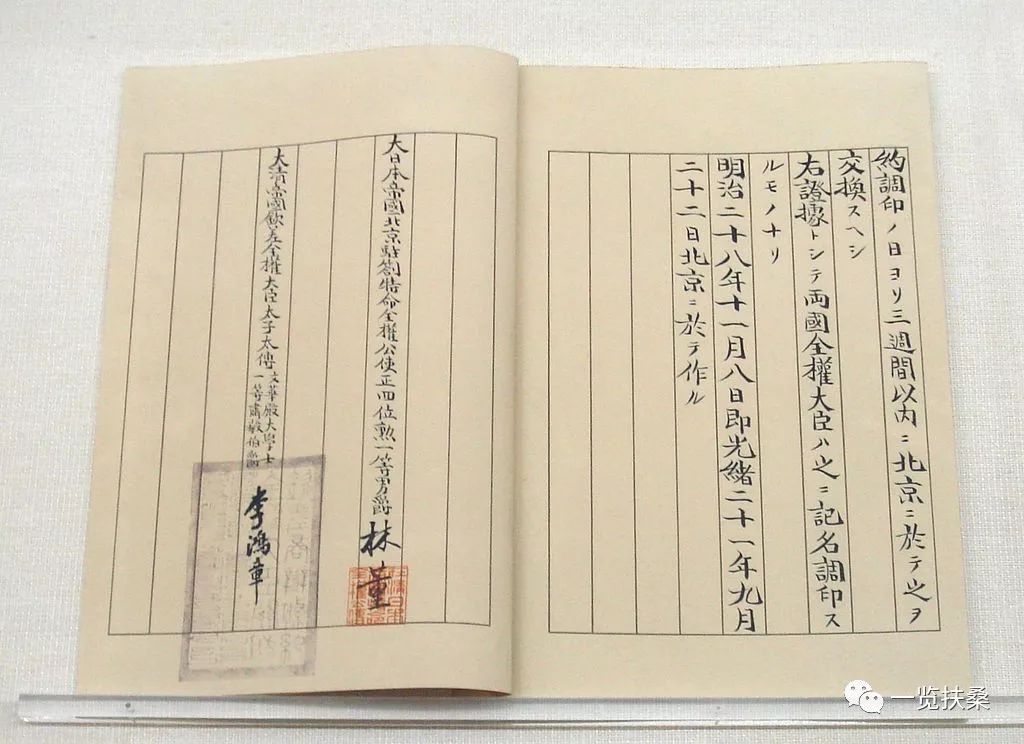 約調印ノ日ヨリ三週間以内ニ北京ニ於テ之ヲ
交換スヘシ
右證據トシテ両國全權大臣ハ之ニ記名調印ス
ルモノナリ
明治二十八年十一月八日即光緒二十一年九月
二十二日北京ニ於テ作ル
大日本帝國北京駐箚特命全權公使正四位勲一等男爵林董
大清帝國欽差全權大臣太子太傅文華殿大學士
一等肅毅伯爵李鴻章
一览扶桑